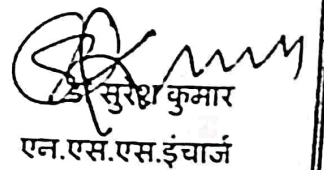 डॉ सुरेश कुमार
एन.एस.एस.इंचार्ज